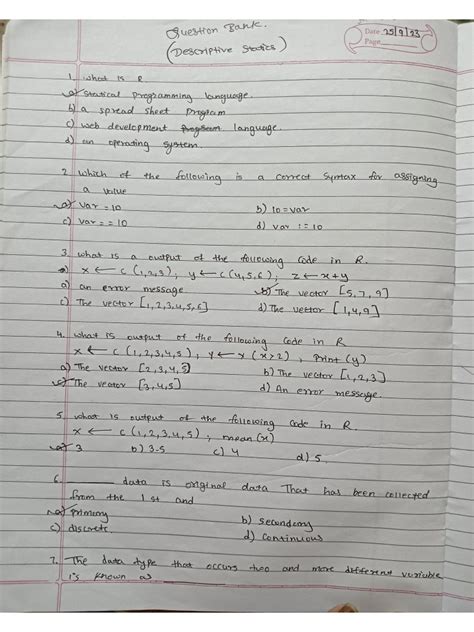 Question Bank.
(Descriptive Statics)
Date 25/9/23
Page
1. What is R
a) Statical programming language.
b) a spread sheet program
c) web development program language.
d) an operating system.
2 which of the following is a correct syntax for assigning
a value
a) var = 10 b) 10 = var
c) var = = 10 d) var := 10
3. what is a output of the following code in R.
a) x ← c (1,2,3); y ← c (4,5,6); z ← x+y
a) an error message b) The vector [5,7,9]
c) The vector [1,2,3,4,5,6] d) The vector [1,4,9]
4. what is output of the following code in R
x ← c (1,2,3,4,5), y ← x (x>2), print (y)
a) The vector [2,3,4,5] b) The vector [1,2,3]
c) The vector [3,4,5] d) An error message.
5. what is output of the following code in R.
x ← c (1,2,3,4,5); mean (x)
a) 3 b) 3.5 c) 4 d) 5
6. ______ data is original data That has been collected
from the 1st and
a) primary b) secondary
c) discrete d) continuous
7. The data type that occurs two and more different variable
is known as